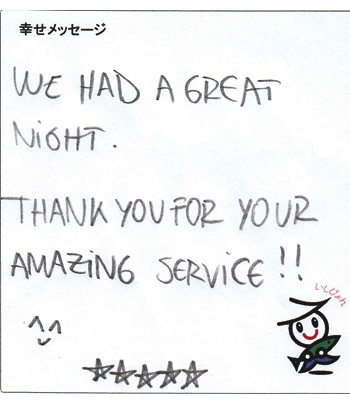 幸せメッセージ
WE HAD A GREAT
NIGHT.
THANK YOU FOR YOUR
AMAZING SERVICE!!
いしぴょん